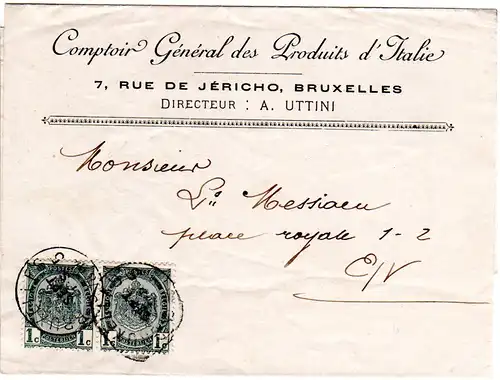 Comptoir Général des Produits d'Italie
7, RUE DE JÉRICHO, BRUXELLES
DIRECTEUR : A. UTTINI
Monsieur
Ls Messiaen
place royale 1-2
E/V
1c 1c 1c